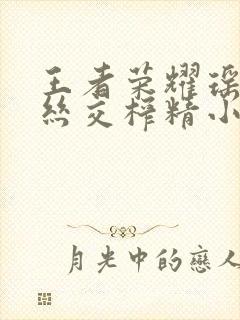 王者荣耀瑶
丝交榨精小
月光中的戀人